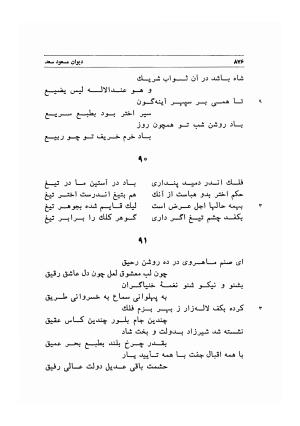 ۸۷۶ دیوان مسعود سعد
شاه باشد در آن ثواب شریک
و هو عندالاله لیس یضیع
۹ تا همی بر سپهر آینه‌گون
سیر اختر بود بطبع سریع
باد روشن شب تو همچون روز
باد خرم خریف تو چو ربیع
۹۰
فلک اندر دمید پنداری باد در آستین ما در تیغ
حکم اختر بدو هباست از آنک هم بتیغ اندرست اختر تیغ
۳ بهمه حالها اجل عرض است لیک قایم شده بجوهر تیغ
بکفد چشم تیغ اگر داری گوهر کلک را برابر تیغ
۹۱
ای صنم ماهروی در ده روشن رحیق
چون لب معشوق لعل چون دل عاشق رقیق
بشنو و نیکو شنو نغمهٔ خنیاگران
به پهلوانی سماع به خسروانی طریق
۳ کرده بکف لاله‌زار ز بهر بزم فلک
چندین جام بلور چندین کاس عقیق
نشسته شد شیرزاد بدولت و بخت شاد
بقدر چرخ بلند بطبع بحر عمیق
با همه اقبال جفت با همه تأیید یار
حشمت باقی عدیل دولت عالی رفیق